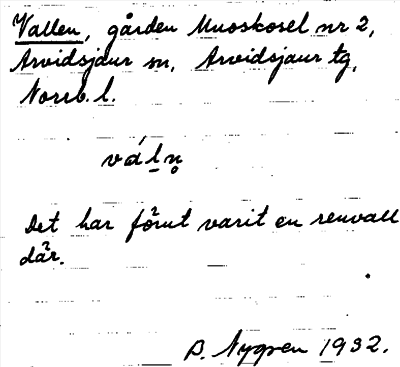 Vallen, gården Muoskosel nr 2,
Arvidsjaur sn, Arvidsjaur tg,
Norrb. l.
váln̥
Det har förut varit en renvall
där.
B. Nygren 1932.